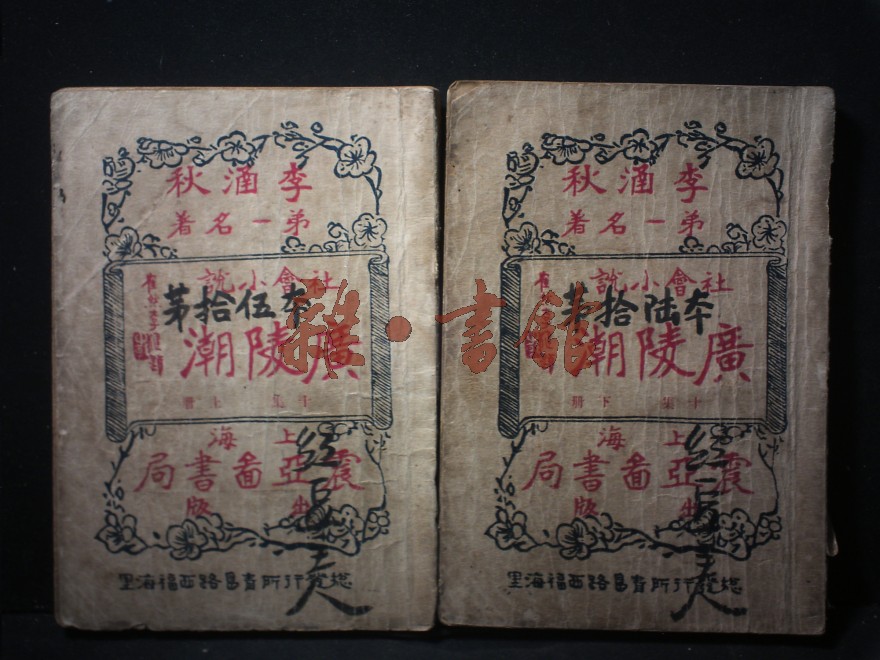 李涵秋
弟一名著
社會小說
第拾伍本
廣陵潮
十集 上冊
上海
震亞啚書局
出版
總發行所 路西福海里
李涵秋
弟一名著
社會小說
第拾陆本
廣陵潮
十集 下冊
上海
震亞啚書局
出版
總發行所 路西福海里
雜·書館